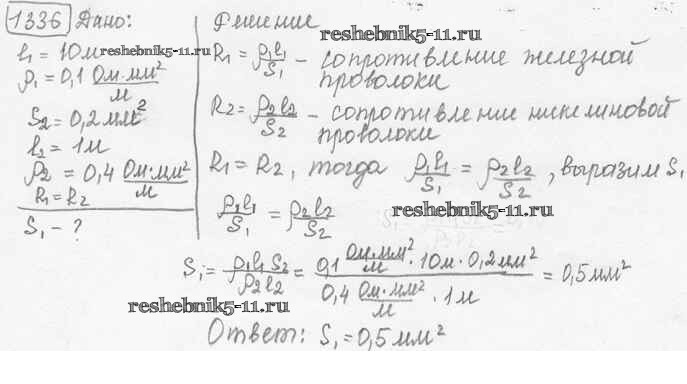 1336 Дано:
l₁ = 10 м
ρ₁ = 0,1 Ом·мм²/м
S₂ = 0,2 мм²
l₂ = 1 м
ρ₂ = 0,4 Ом·мм²/м
R₁ = R₂
S₁ - ?
Решение
R₁ = ρ₁l₁/S₁ - сопротивление железной
проволоки
R₂ = ρ₂l₂/S₂ - сопротивление никелиновой
проволоки
R₁ = R₂, тогда ρ₁l₁/S₁ = ρ₂l₂/S₂, выразим S₁
ρ₁l₁/S₁ = ρ₂l₂/S₂
S₁ = ρ₁l₁S₂/ρ₂l₂ = 0,1 Ом·мм²/м · 10 м · 0,2 мм² / 0,4 Ом·мм²/м · 1 м = 0,5 мм²
Ответ: S₁ = 0,5 мм²
reshebnik5-11.ru
reshebnik5-11.ru
reshebnik5-11.ru
reshebnik5-11.ru